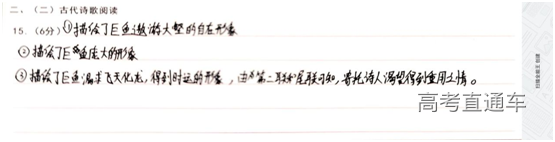 二、（二）古代诗歌阅读
15.（6分）①描绘了巨鱼遨游大壑的自在形象
②描绘了巨鱼庞大的形象
③描绘了巨鱼渴求飞天化龙，得到时运的形象，由第二联和尾联可知，寄托诗人渴望得到重用之情。
高考直通车